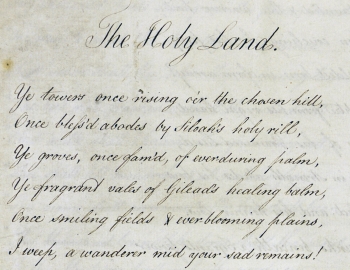 The Holy Land.
Ye towers once rising o'er the chosen hill,
Once bless'd abodes by Siloah's holy rill,
Ye groves, once fam'd, of everduring palm,
Ye fragrant vales of Gilead's healing balm,
Once smiling fields & everblooming plains,
I weep, a wanderer mid your sad remains!